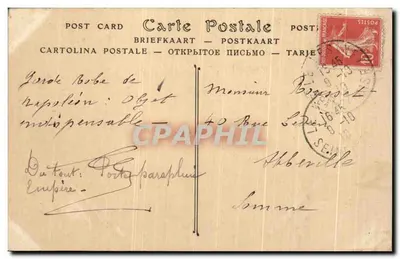 POST CARD Carte Postale POST
BRIEFKAART — POSTKAART
CARTOLINA POSTALE — ОТКРЫТОЕ ПИСЬМО — TARJE
Garde Robe de
Napoléon : Objet
indispensable —
Du tout : Porte parapluie
Empire —
Monsieur
40 Rue
Abbeville
Somme
10